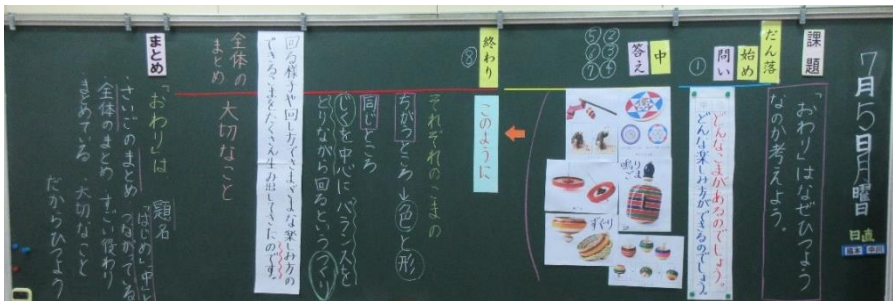 7月15日月曜日
日直
課題
「おわり」はなぜひつよう
なのか考えよう。
だん落
始め
問い
①
どんなこまがあるのでしょう。
どんな楽しみ方ができるのでしょう。
中
答え
②③④⑤⑥⑦
鳴りごま
ずぐり
終わり
⑧
このように
それぞれのこまの
ちがうところ→色と形
同じところ
じくを中心にバランスを
とりながら回るというつくり
回る様子や回し方でさまざまな楽しみ方の
できるこまをたくさん生み出してきたのです。
全体の
まとめ
大切なこと
まとめ
「おわり」は
題名
「はじめ」「中」と
・さいごのまとめ つながっている
・全体のまとめ すごい役わり
まとめている 大切なこと
だからひつよう